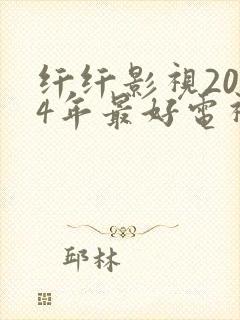 纤纤影視20
4年最好電
邱林